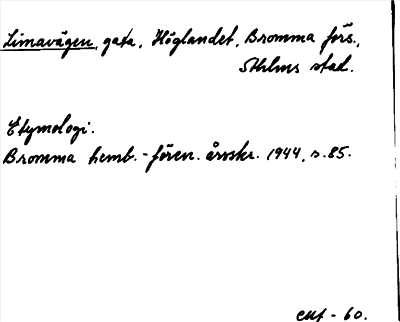 Limavägen, gata, Höglandet, Bromma förs.,
Sthlms stad.
Etymologi.
Bromma hemb.-fören. årsskr. 1944, s. 85.
- 60.